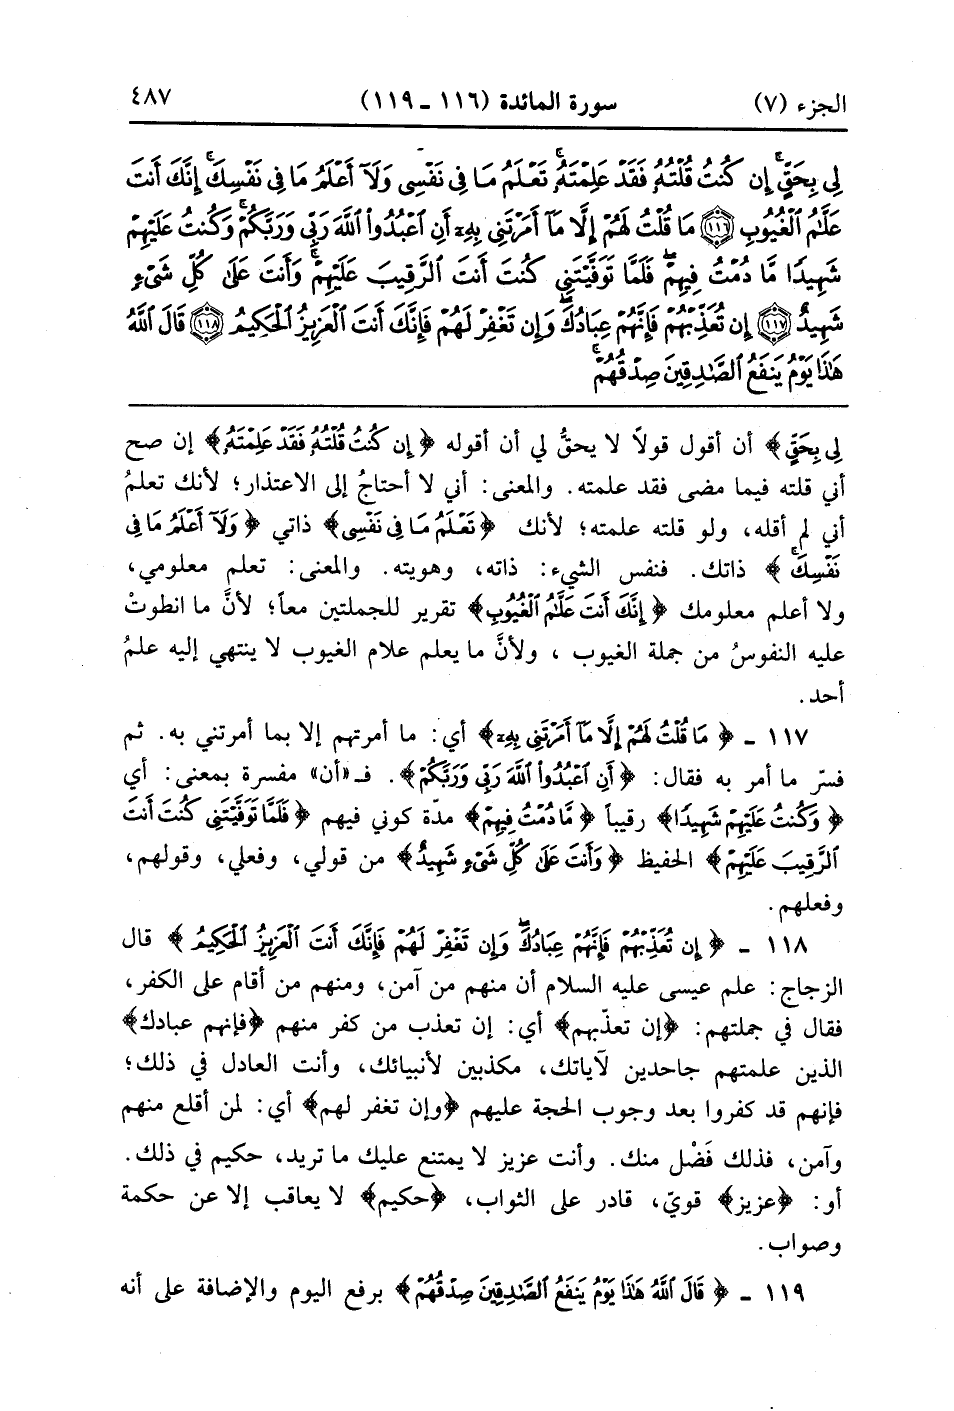 الجزء (٧) سورة المائدة (١١٦ - ١١٩) ٤٨٧
لِي بِحَقٍّ إِن كُنتُ قُلْتُهُ فَقَدْ عَلِمْتَهُ تَعْلَمُ مَا فِي نَفْسِي وَلَا أَعْلَمُ مَا فِي نَفْسِكَ إِنَّكَ أَنتَ
عَلَّامُ الْغُيُوبِ ١١٦ مَا قُلْتُ لَهُمْ إِلَّا مَا أَمَرْتَنِي بِهِ أَنِ اعْبُدُوا اللَّهَ رَبِّي وَرَبَّكُمْ وَكُنتُ عَلَيْهِمْ
شَهِيدًا مَّا دُمْتُ فِيهِمْ فَلَمَّا تَوَفَّيْتَنِي كُنتَ أَنتَ الرَّقِيبَ عَلَيْهِمْ وَأَنتَ عَلَى كُلِّ شَيْءٍ
شَهِيدٌ ١١٧ إِن تُعَذِّبْهُمْ فَإِنَّهُمْ عِبَادُكَ وَإِن تَغْفِرْ لَهُمْ فَإِنَّكَ أَنتَ الْعَزِيزُ الْحَكِيمُ ١١٨ قَالَ اللَّهُ
هَٰذَا يَوْمُ يَنفَعُ الصَّادِقِينَ صِدْقُهُمْ
لِي بِحَقٍّ﴾ أن أقول قولاً لا يحقُّ لي أن أقوله ﴿إِن كُنتُ قُلْتُهُ فَقَدْ عَلِمْتَهُ﴾ إن صح
أني قلته فيما مضى فقد علمته. والمعنى: أني لا أحتاجُ إلى الاعتذار؛ لأنك تعلمُ
أني لم أقله، ولو قلته علمته؛ لأنك ﴿تَعْلَمُ مَا فِي نَفْسِي﴾ ذاتي ﴿وَلَا أَعْلَمُ مَا فِي
نَفْسِكَ﴾ ذاتك. فنفس الشيء: ذاته، وهويته. والمعنى: تعلم معلومي،
ولا أعلم معلومك ﴿إِنَّكَ أَنتَ عَلَّامُ الْغُيُوبِ﴾ تقرير للجملتين معاً؛ لأنَّ ما انطوتْ
عليه النفوسُ من جملة الغيوب، ولأنَّ ما يعلم علام الغيوب لا ينتهي إليه علمُ
أحد.
١١٧ - ﴿مَا قُلْتُ لَهُمْ إِلَّا مَا أَمَرْتَنِي بِهِ﴾ أي: ما أمرتهم إلا بما أمرتني به. ثم
فسّر ما أمر به فقال: ﴿أَنِ اعْبُدُوا اللَّهَ رَبِّي وَرَبَّكُمْ﴾. فـ«أن» مفسرة بمعنى: أي
﴿وَكُنتُ عَلَيْهِمْ شَهِيدًا﴾ رقيباً ﴿مَّا دُمْتُ فِيهِمْ﴾ مدّة كوني فيهم ﴿فَلَمَّا تَوَفَّيْتَنِي كُنتَ أَنتَ
الرَّقِيبَ عَلَيْهِمْ﴾ الحفيظ ﴿وَأَنتَ عَلَى كُلِّ شَيْءٍ شَهِيدٌ﴾ من قولي، وفعلي، وقولهم،
وفعلهم.
١١٨ - ﴿إِن تُعَذِّبْهُمْ فَإِنَّهُمْ عِبَادُكَ وَإِن تَغْفِرْ لَهُمْ فَإِنَّكَ أَنتَ الْعَزِيزُ الْحَكِيمُ﴾ قال
الزجاج: علم عيسى عليه السلام أن منهم من آمن، ومنهم من أقام على الكفر،
فقال في جملتهم: ﴿إن تعذّبهم﴾ أي: إن تعذب من كفر منهم ﴿فإنهم عبادك﴾
الذين علمتهم جاحدين لآياتك، مكذبين لأنبيائك، وأنت العادل في ذلك؛
فإنهم قد كفروا بعد وجوب الحجة عليهم ﴿وإن تغفر لهم﴾ أي: لمن أقلع منهم
وآمن، فذلك فَضْل منك. وأنت عزيز لا يمتنع عليك ما تريد، حكيم في ذلك.
أو: ﴿عزيز﴾ قويّ، قادر على الثواب، ﴿حكيم﴾ لا يعاقب إلا عن حكمة
وصواب.
١١٩ - ﴿قَالَ اللَّهُ هَٰذَا يَوْمُ يَنفَعُ الصَّادِقِينَ صِدْقُهُمْ﴾ برفع اليوم والإضافة على أنه